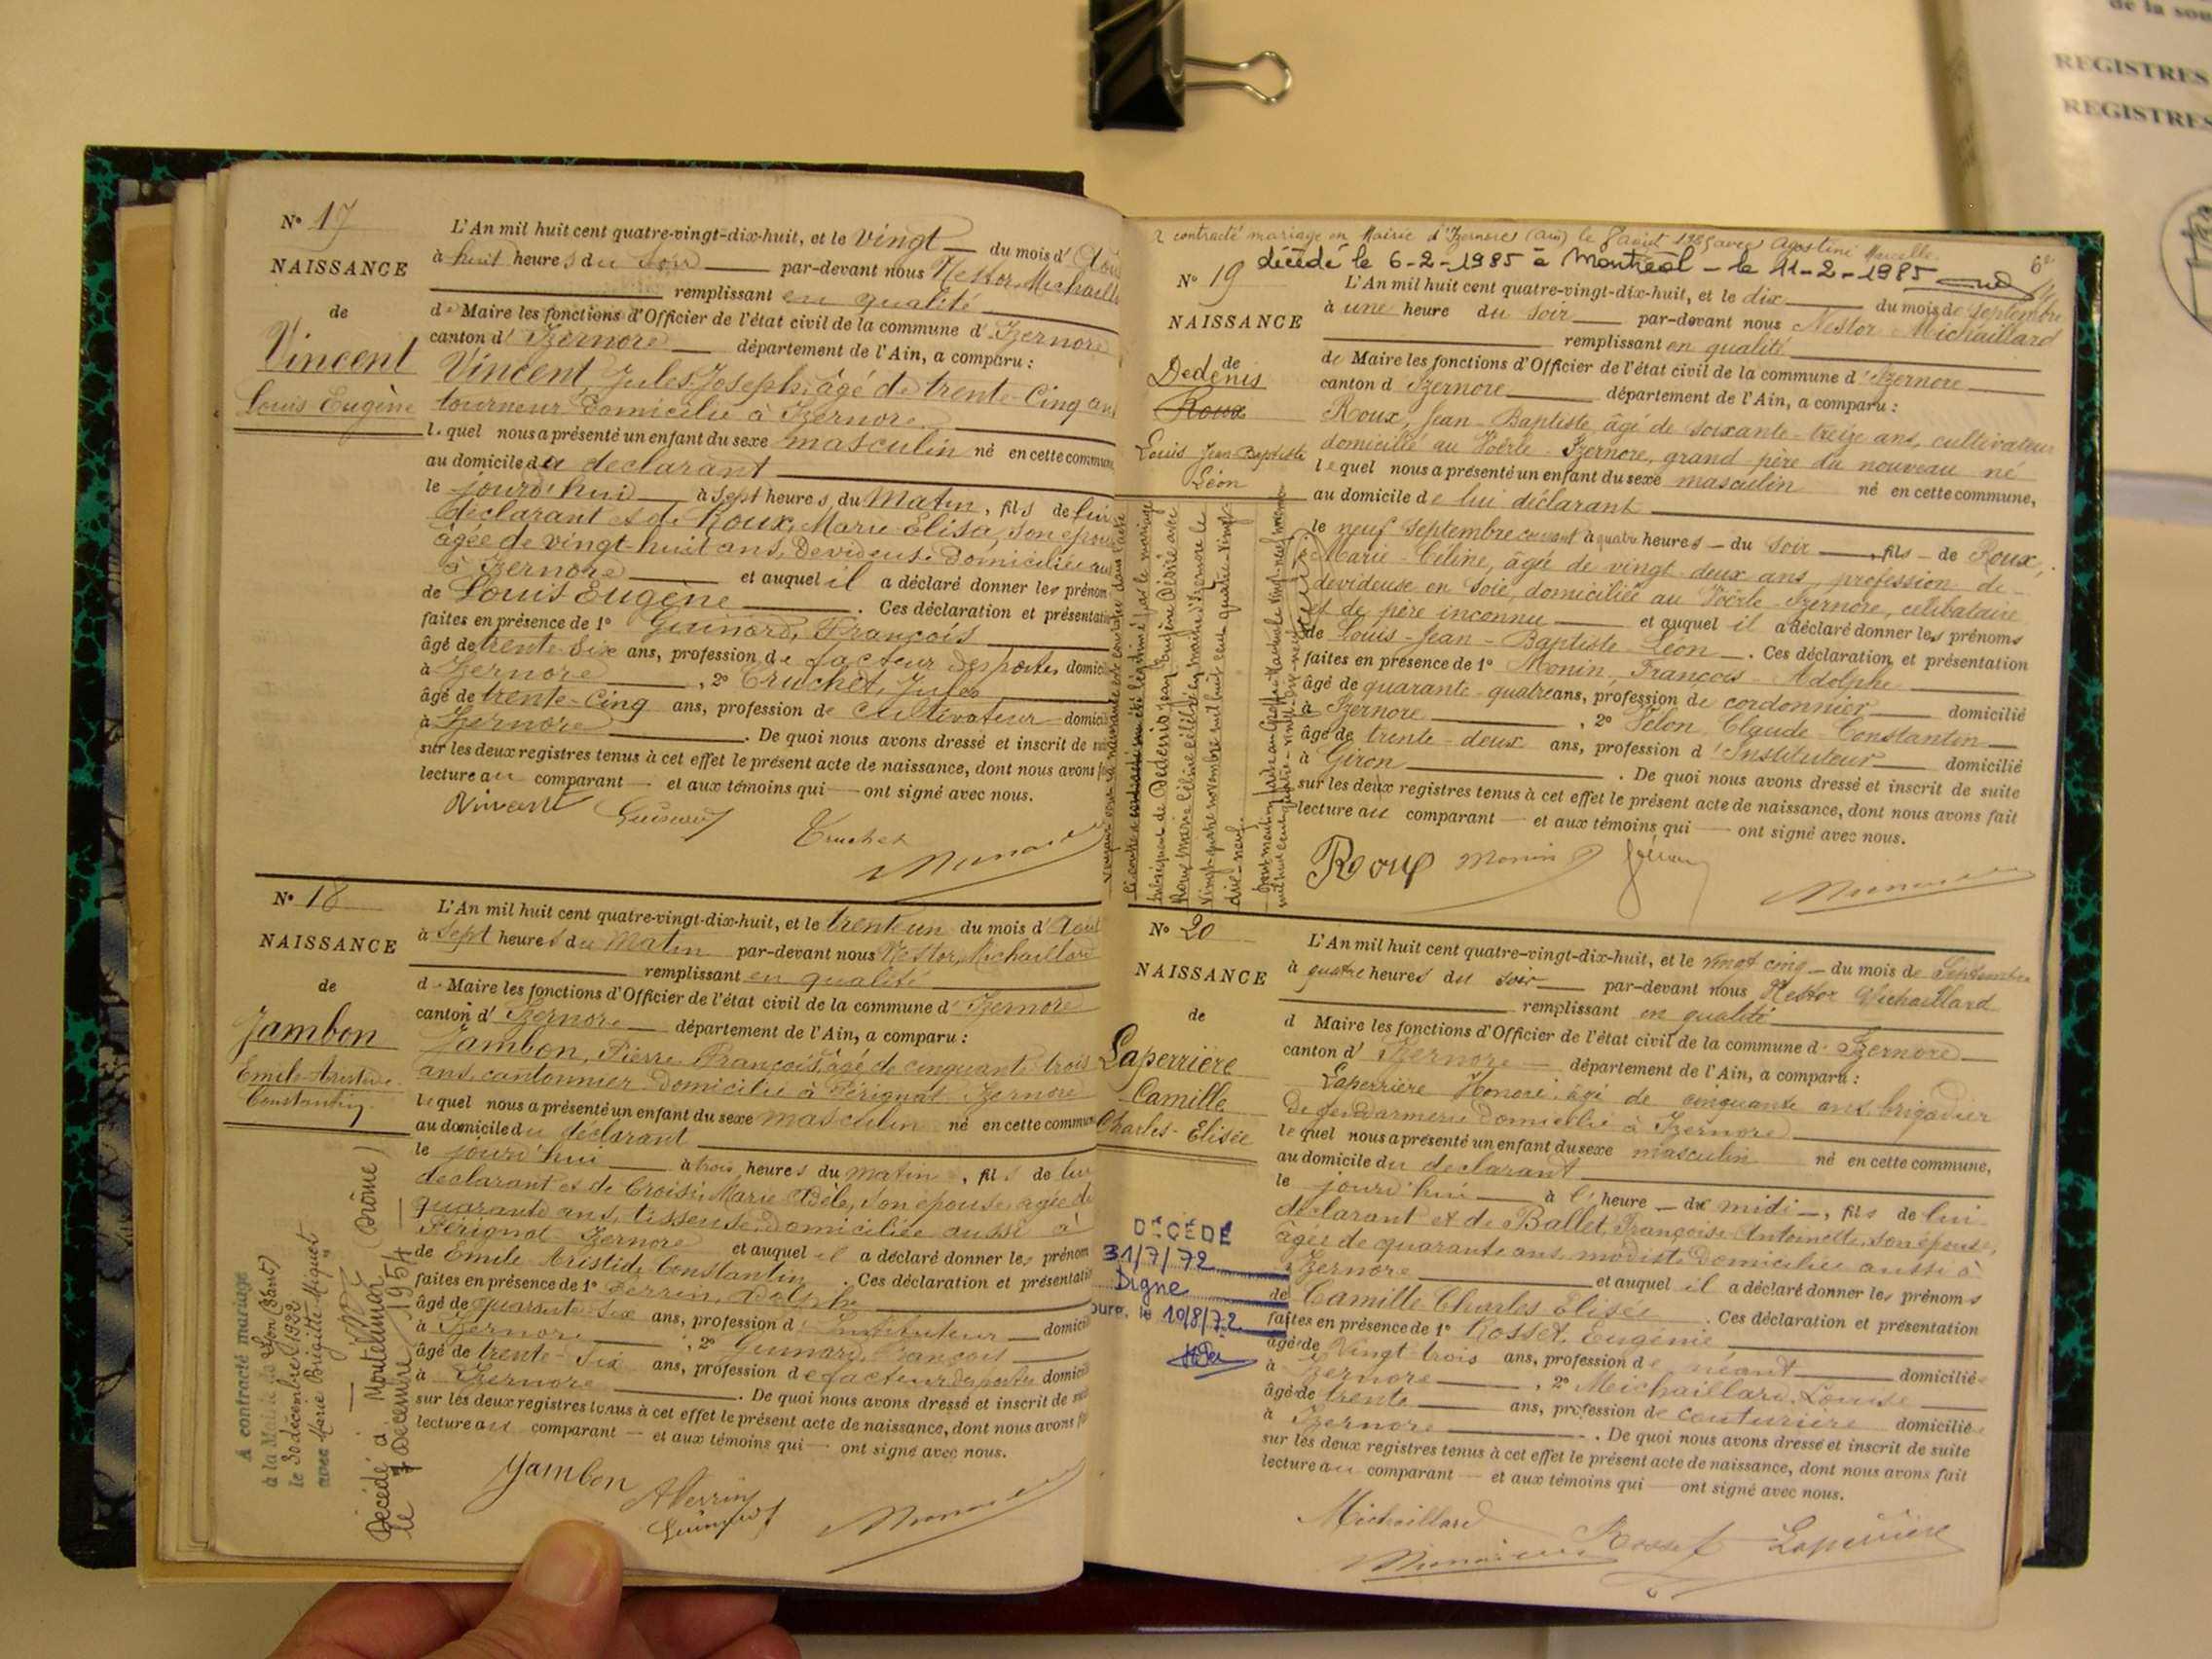 de la sou
REGISTRES
REGISTRES
N° 17
NAISSANCE
de
Vincent
Louis-Eugène
L'An mil huit cent quatre-vingt-dix-huit, et le vingt du mois d'Aou
à huit heures du soir par-devant nous Nestor Michaill
remplissant en qualité
de Maire les fonctions d'Officier de l'état civil de la commune d'Izernore
canton d'Izernore département de l'Ain, a comparu :
Vincent, Jules-Joseph, âgé de trente-cinq ans
tourneur domicilié à Izernore
lequel nous a présenté un enfant du sexe masculin né en cette commune,
au domicile du declarant
le jourd'hui à sept heures du Matin, fils de lui
déclarant et de Roux, Marie Elisa, son épou
âgée de vingt-huit ans, devideuse domiciliée au
à Izernore et auquel il a déclaré donner les prénom
de Louis Eugène. Ces déclaration et présentatio
faites en présence de 1° Guinard, François
âgé de trente-six ans, profession de facteur des postes domic
à Izernore, 2° Truchet, Jules
âgé de trente-cinq ans, profession de cultivateur domici
à Izernore. De quoi nous avons dressé et inscrit de su
sur les deux registres tenus à cet effet le présent acte de naissance, dont nous avons f
lecture au comparant et aux témoins qui ont signé avec nous.
Vincent Guinard
Truchet
N° 18
NAISSANCE
de
Jambon
Emile-Aristide
Constantin
A contracté mariage
à la Mairie de Lyon (3ème)
le 30 décembre 1922
avec Marie Brigitte Miquet
Décédé à Montélimar (Drôme)
le 7 Décembre 1954
L'An mil huit cent quatre-vingt-dix-huit, et le trente-un du mois d'Aout
à sept heures du Matin par-devant nous Nestor, Michaillard
remplissant en qualité
de Maire les fonctions d'Officier de l'état civil de la commune d'Izernore
canton d'Izernore département de l'Ain, a comparu :
Jambon, Pierre François, âgé de cinquante trois
ans, cantonnier domicilié à Pérignat Izernore
lequel nous a présenté un enfant du sexe masculin né en cette commun
au domicile du déclarant
le jourd'hui à trois heures du matin, fils de lui
declarant et de Croisi, Marie Adèle, son épouse, agée de
quarante ans, tisseuse, domiciliée aussi à
Pérignat Izernore et auquel il a déclaré donner les prénom
de Emile Aristide Constantin. Ces déclaration et présentatio
faites en présence de 1° Perrin, Adolphe
âgé de quarante-six ans, profession d'Instituteur domicil
à Izernore, 2° Guinard, François
âgé de trente-six ans, profession de facteur des postes domici
à Izernore. De quoi nous avons dressé et inscrit de su
sur les deux registres tenus à cet effet le présent acte de naissance, dont nous avons f
lecture au comparant et aux témoins qui ont signé avec nous.
Jambon A Perrin
Guinard
contracté mariage en Mairie d'Izernore (Ain) le 8 août avec Agostini Marcelle
décédé le 6-2-1985 à Montréal - le 11-2-1985
N° 19
NAISSANCE
de
Dedenis
Roux
Louis Jean-Baptiste
Léon
L'An mil huit cent quatre-vingt-dix-huit, et le dix du mois de Septembre
à une heure du soir par-devant nous Nestor Michaillard
remplissant en qualité
de Maire les fonctions d'Officier de l'état civil de la commune d'Izernore
canton d'Izernore département de l'Ain, a comparu :
Roux, Jean-Baptiste, âgé de soixante-treize ans, cultivateur
domicilié au Voërle-Izernore, grand père du nouveau né
lequel nous a présenté un enfant du sexe masculin né en cette commune,
au domicile de lui déclarant
le neuf Septembre courant à quatre heures du soir, fils de Roux,
Marie-Céline, âgée de vingt-deux ans, profession de
devideuse en soie, domiciliée au Voërle-Izernore, célibataire
et de père inconnu et auquel il a déclaré donner les prénoms
de Louis-Jean-Baptiste-Léon. Ces déclaration et présentation
faites en présence de 1° Monin, François-Adolphe
âgé de quarante-quatre ans, profession de cordonnier domicilié
à Izernore, 2° Claude-Constantin
âgé de trente-deux ans, profession d'Instituteur domicilié
à Giron. De quoi nous avons dressé et inscrit de suite
sur les deux registres tenus à cet effet le présent acte de naissance, dont nous avons fait
lecture au comparant et aux témoins qui ont signé avec nous.
Roux Monin
N° 20
NAISSANCE
de
Laperrière
Camille
Charles-Elisée
DÉCÉDÉ
31/7/72
Digne
le 10/8/72
L'An mil huit cent quatre-vingt-dix-huit, et le vingt cinq du mois de Septembre
à quatre heures du soir par-devant nous Nestor Michaillard
remplissant en qualité
d Maire les fonctions d'Officier de l'état civil de la commune d'Izernore
canton d'Izernore département de l'Ain, a comparu :
Laperrière Honoré, âgé de cinquante ans, brigadier
de gendarmerie domicilié à Izernore
lequel nous a présenté un enfant du sexe masculin né en cette commune,
au domicile du declarant
le jourd'hui à l' heure de midi, fils de lui
declarant et de Ballet, Françoise Antoinette, son épouse,
âgée de quarante ans, modiste domiciliée aussi à
Izernore et auquel il a déclaré donner les prénoms
de Camille Charles Elisée. Ces déclaration et présentation
faites en présence de 1° Rosset, Eugénie
âgée de vingt trois ans, profession de néant domiciliée
à Izernore, 2° Michaillard, Louise
âgée de trente ans, profession de couturière domiciliée
à Izernore. De quoi nous avons dressé et inscrit de suite
sur les deux registres tenus à cet effet le présent acte de naissance, dont nous avons fait
lecture au comparant et aux témoins qui ont signé avec nous.
Michaillard Rosset Laperrière